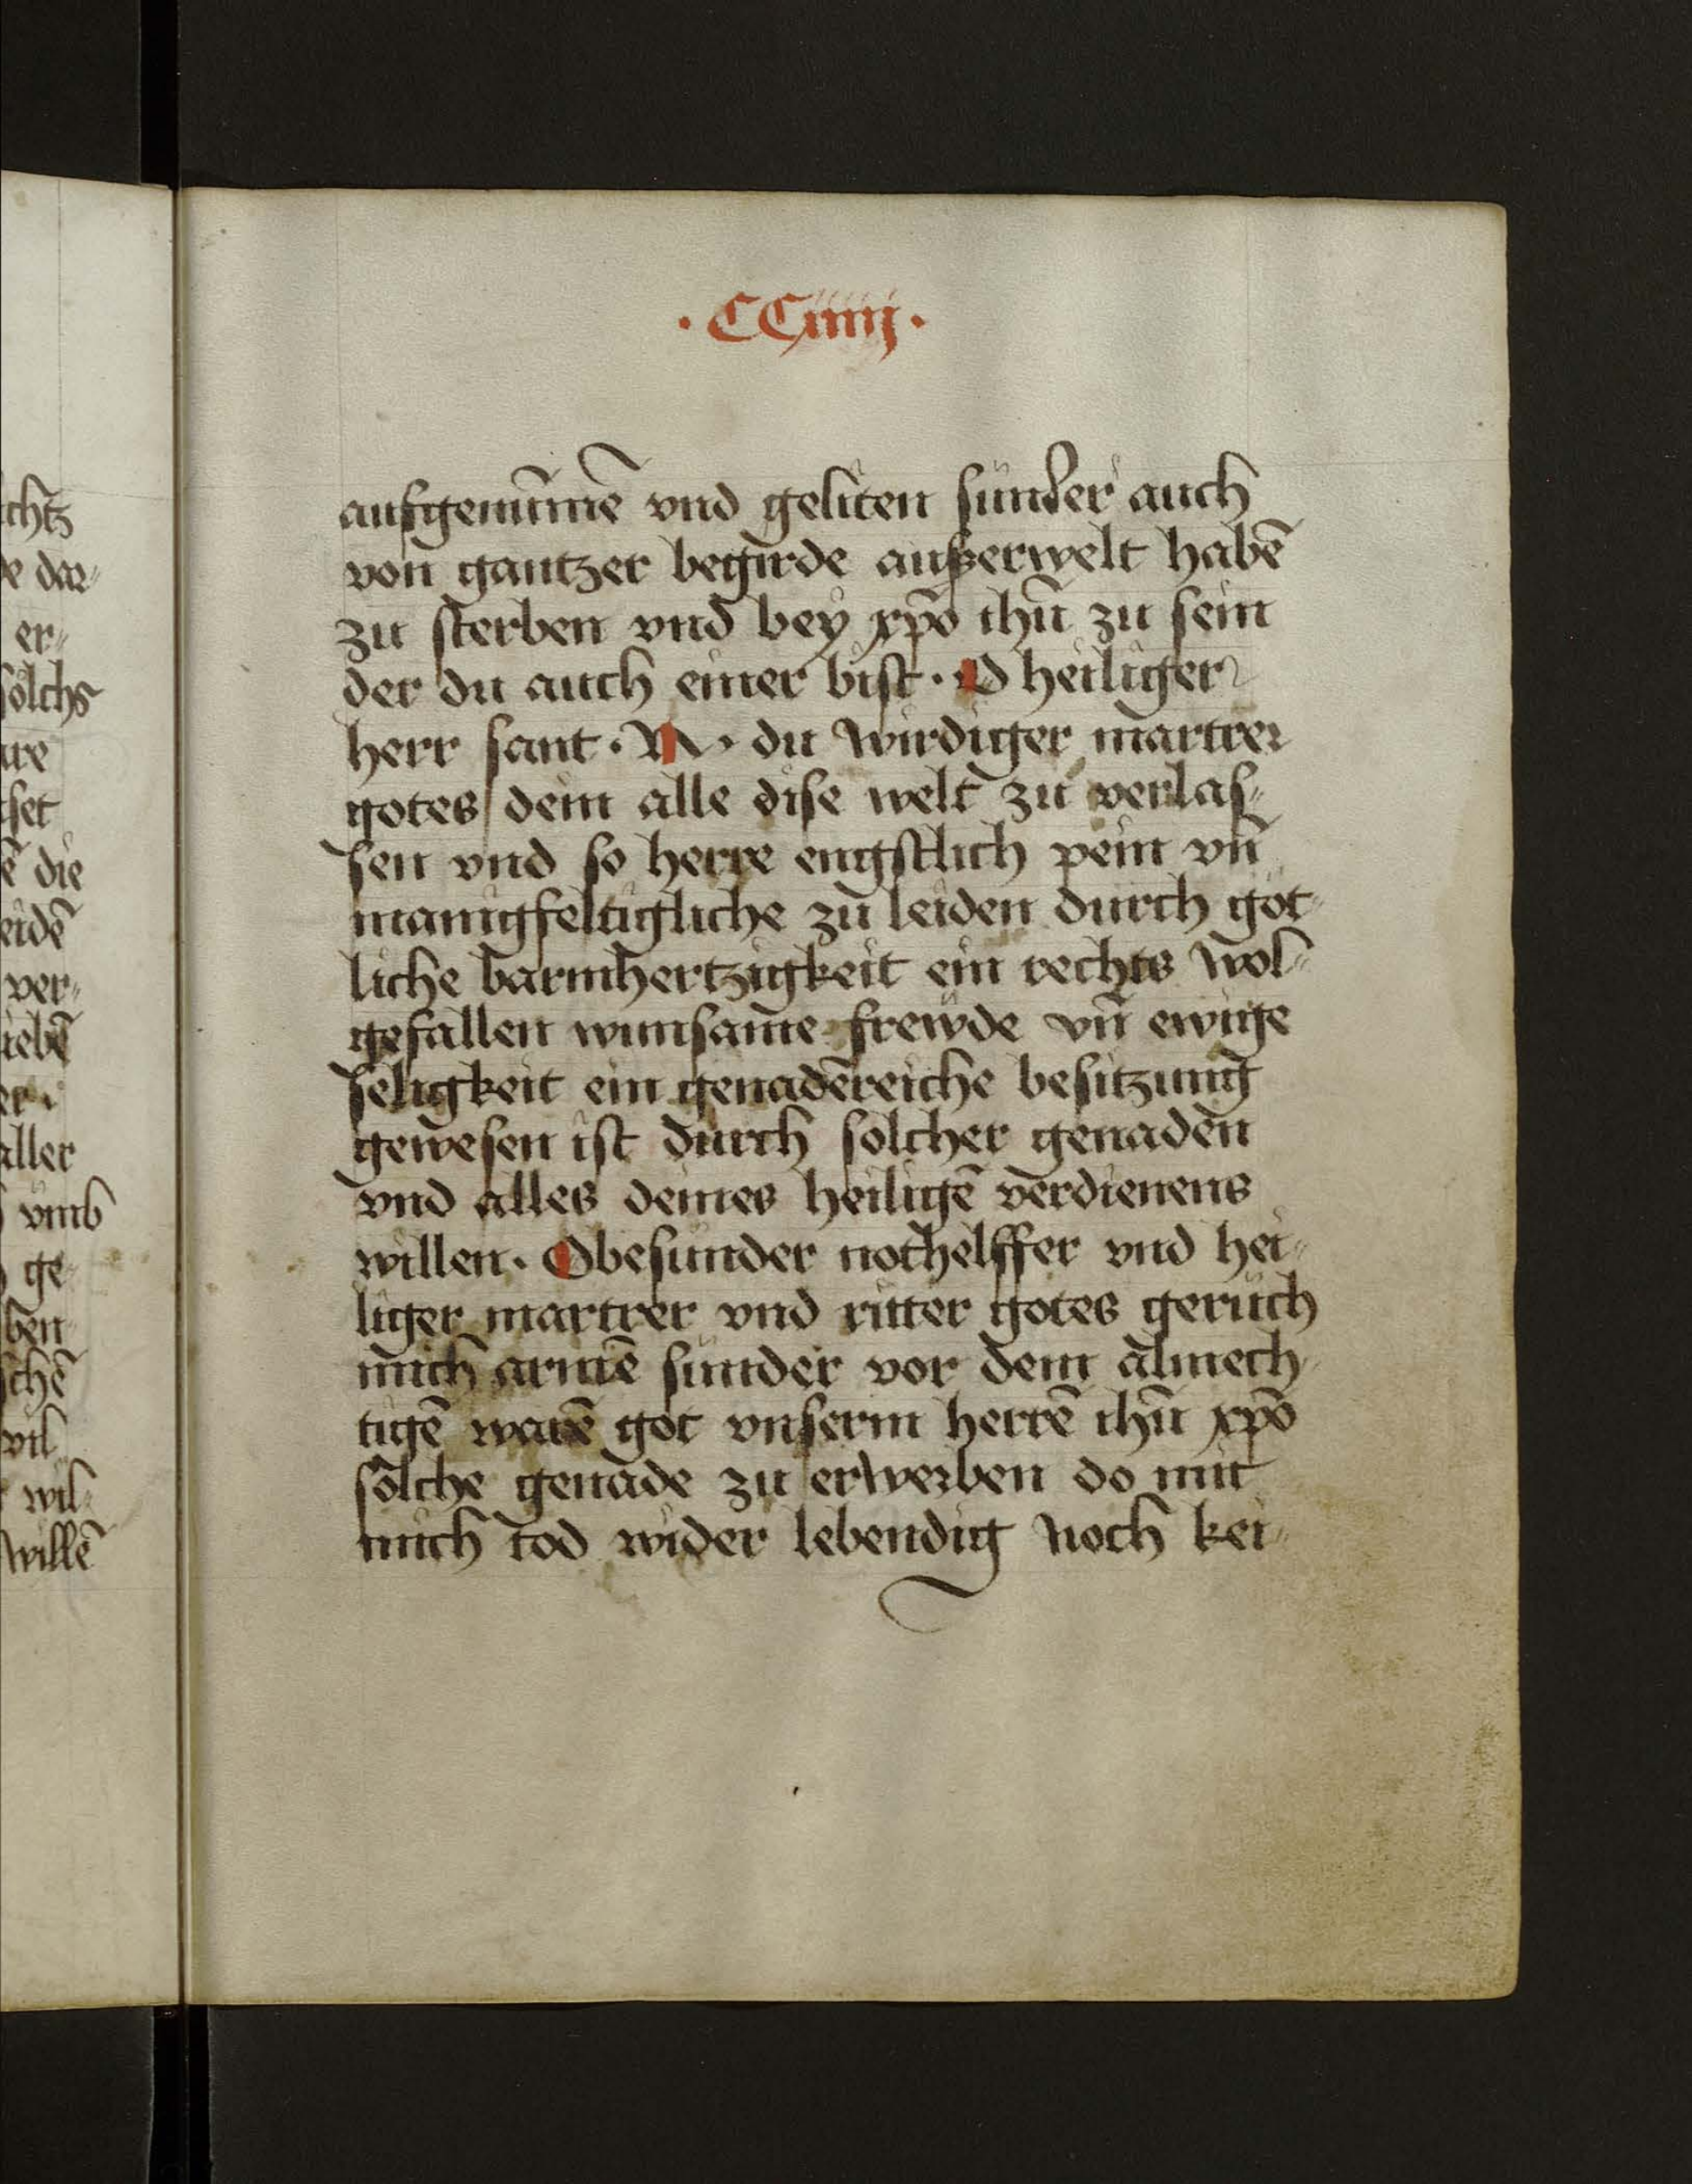 ·CCiiiij·
aufgenūmē vnd geliten sunder auch
von gantzer begirde außerwelt habē
zu sterben vnd bey xp̄o ihū zu sein
der du auch einer bist · O heiliger
herr sant · N · du wirdiger martrer
gotes dem alle dise welt zu verlas⸗
sen vnd so herre engstlich pein vn̄
manigfeltigliche zu leiden durch göt⸗
liche barmhertzigkeit ein rechts wol⸗
gefallen wunsame frewde vn̄ ewige
seligkeit ein genadēreiche besitzung
gewesen ist durch solcher genaden
vnd alles deines heiligē verdienens
willen · O besunder nothelffer vnd hei⸗
liger martrer vnd ritter gotes geruch
mich armē sunder vor dem almech⸗
tigē warē got vnserm herrē ihū xp̄o
sölche genade zu erwerben do mit
mich tod wider lebendig noch kei⸗